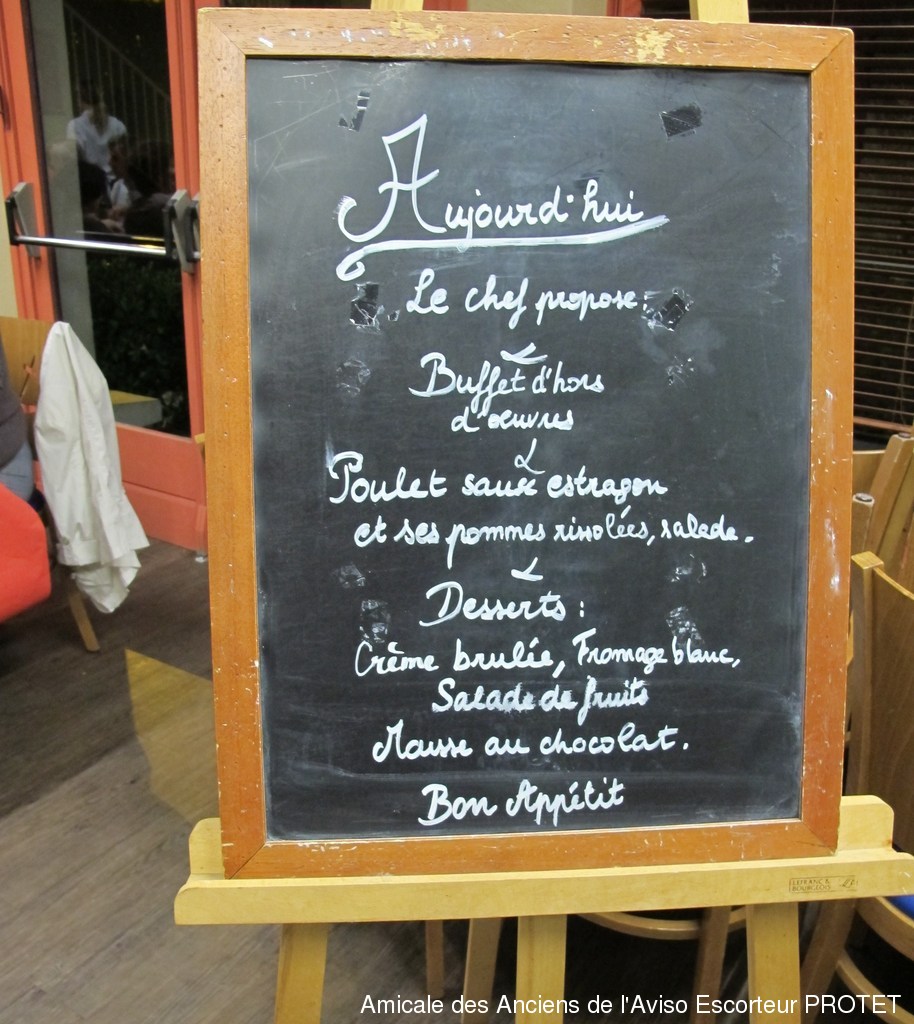 Aujourd'hui
Le chef propose:
Buffet d'hors
d'oeuvres
Poulet sauce estragon
et ses pommes rissolées, salade.
Desserts:
Crème brulée, Fromage blanc,
Salade de fruits
Mousse au chocolat.
Bon Appétit
LEFRANC & BOURGEOIS
Amicale des Anciens de l'Aviso Escorteur PROTET